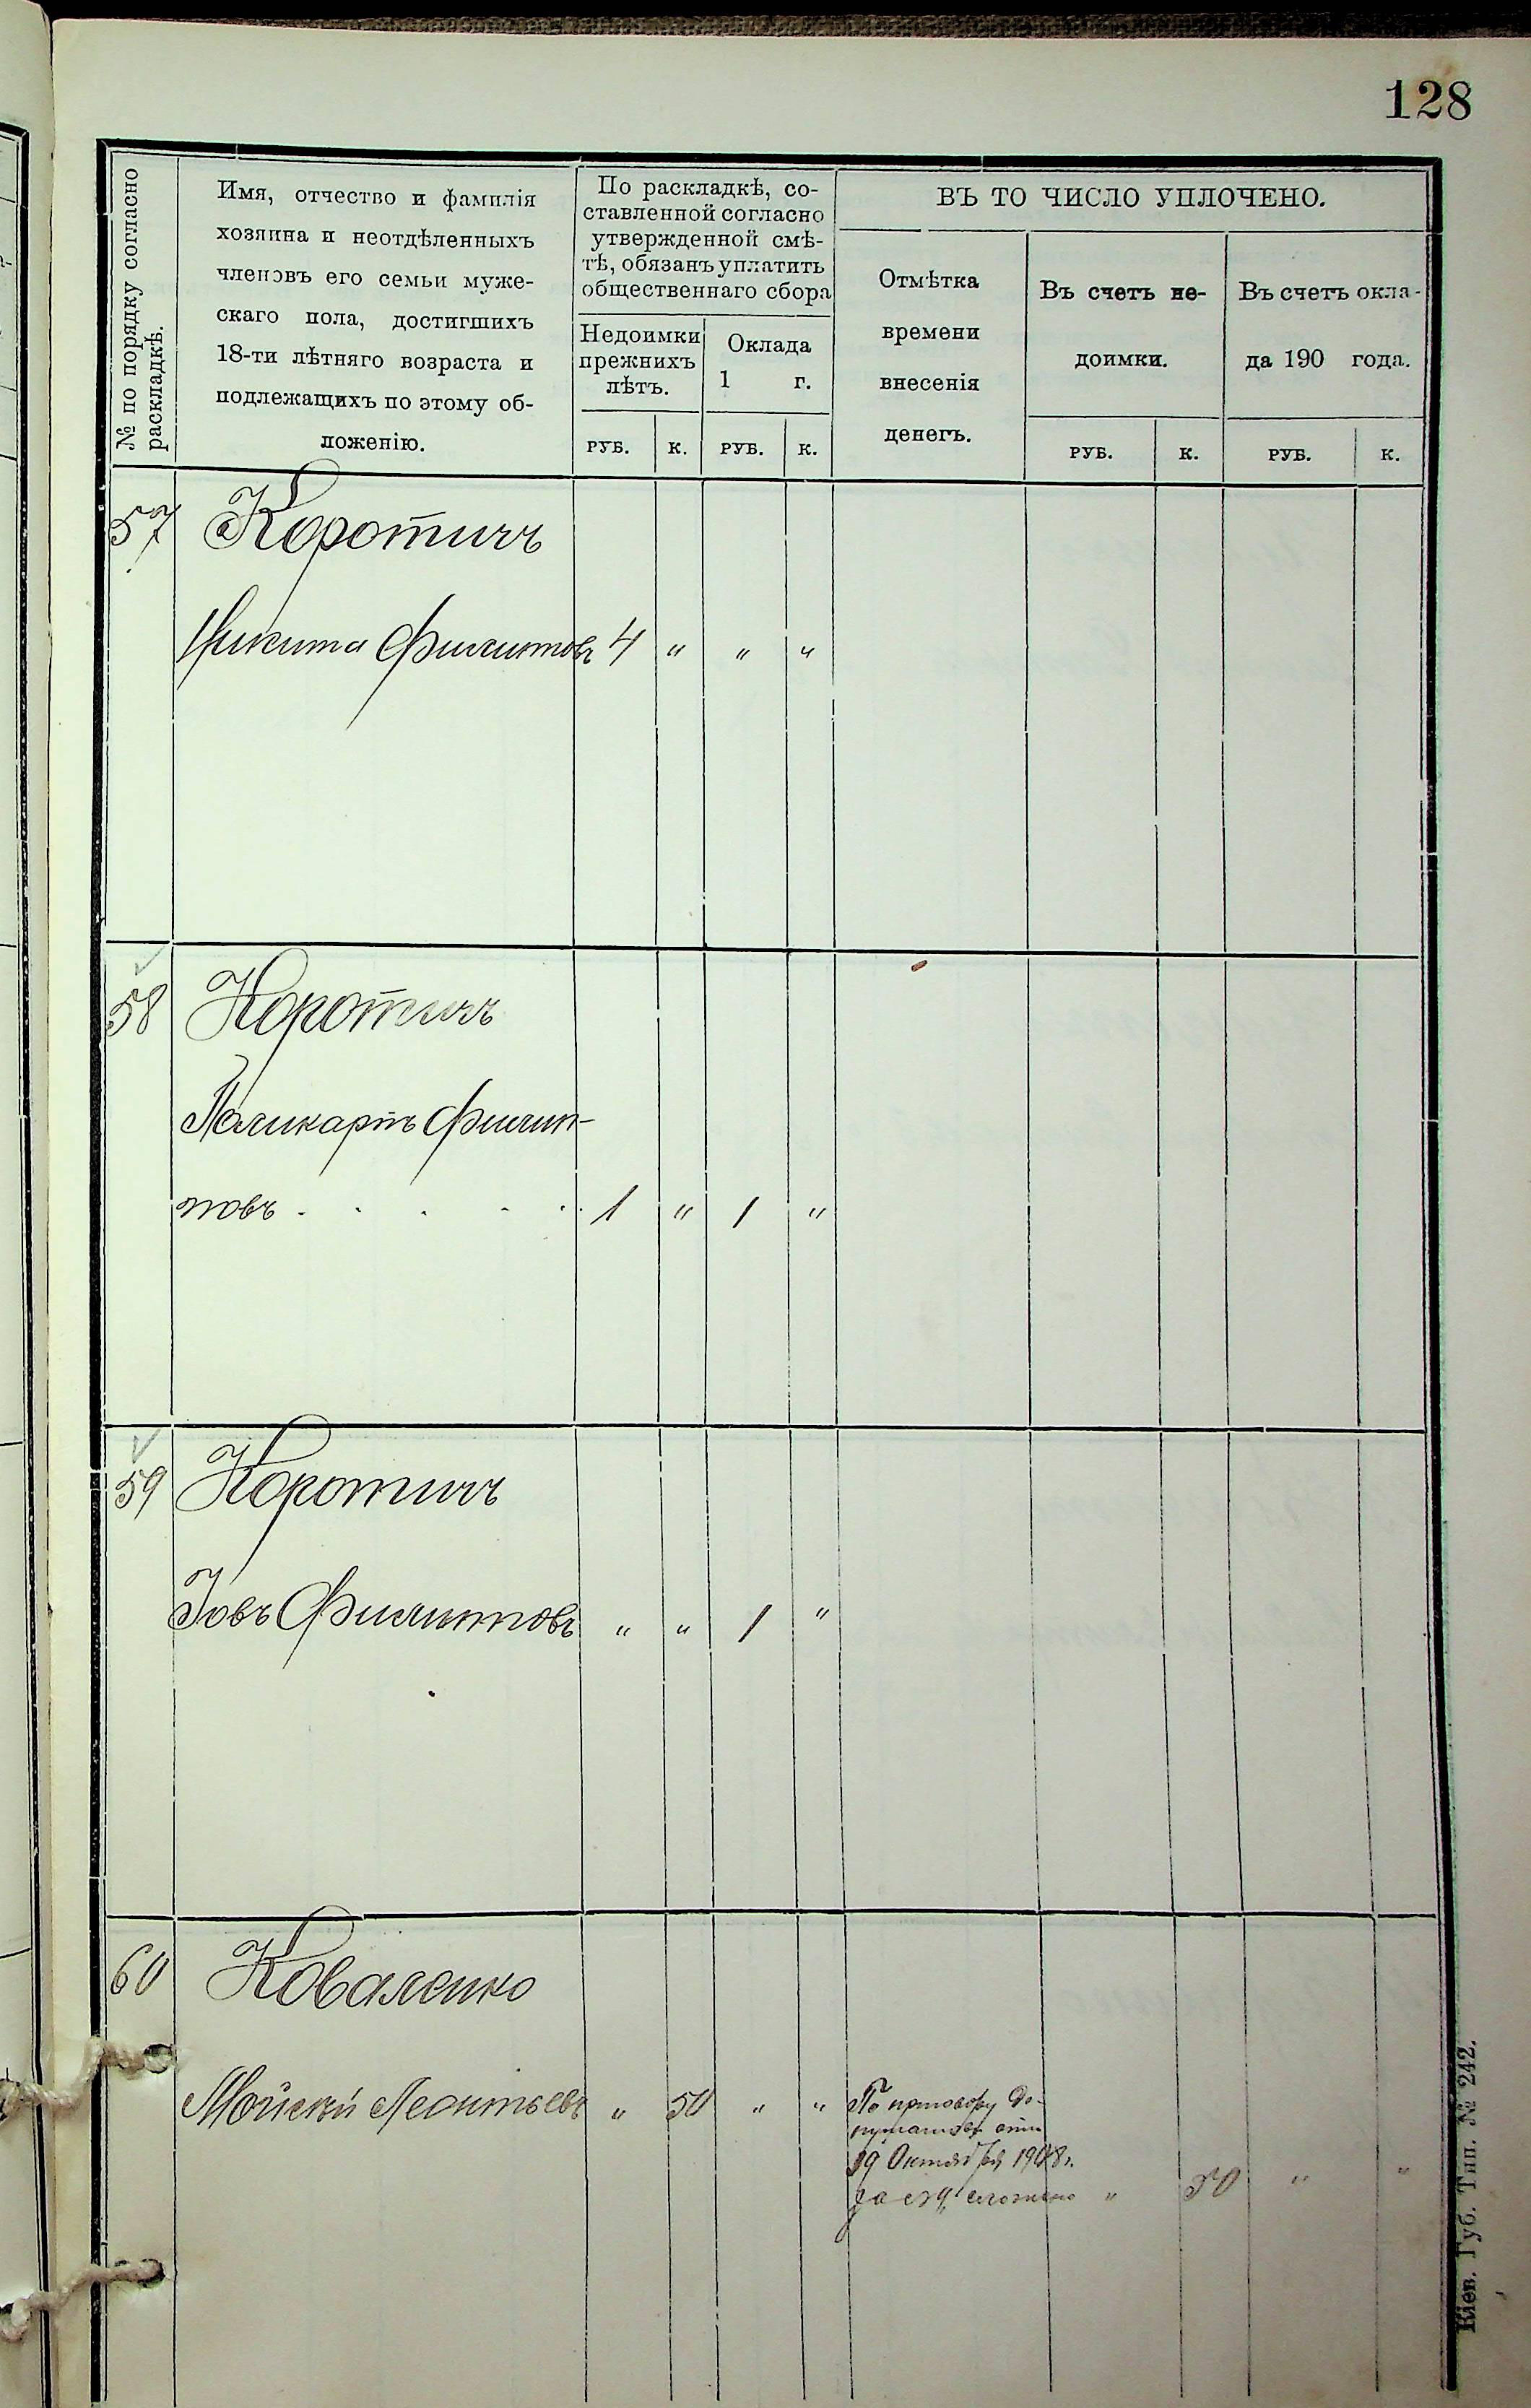 128
№ по порядку согласно
раскладкѣ.
Имя, отчество и фамилія
хозяина и неотдѣленныхъ
членовъ его семьи муже-
скаго пола, достигшихъ
18-ти лѣтняго возраста и
подлежащихъ по этому об-
ложенію.
По раскладкѣ, со-
ставленной согласно
утвержденной смѣ-
тѣ, обязанъ уплатить
общественнаго сбора
Недоимки
прежнихъ
лѣтъ.
Оклада
1 г.
РУБ. К. РУБ. К.
ВЪ ТО ЧИСЛО УПЛОЧЕНО.
Отмѣтка
времени
внесенія
денегъ.
Въ счетъ не-
доимки.
Въ счетъ окла-
да 190 года.
РУБ. К. РУБ. К.
57 Коротичъ
Никита Филиповъ 4 " " "
58 Коротичъ
Поликарпъ Филип-
повъ . . . . . 1 " 1 "
59 Коротичъ
Іовъ Филиповъ " " 1 "
60 Коваленко
Мойсей Леонтьевъ " 50 " "
По приговору де-
путатовъ отъ
19 Октября 1908 г.
за № сложено " 50 " "
Кіев. Губ. Тип. № 242.